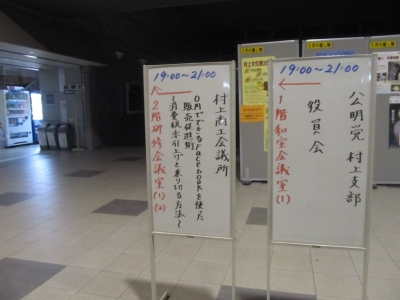 19:00〜21:00
村上商工会議所
0円でできるFacebookを使った
販売促進術
〜消費税率引上げを乗り切る方法〜
↖2階研修会議室(1)(2)
19:00〜21:00
公明党 村上支部
役員会
←1階和室会議室(1)